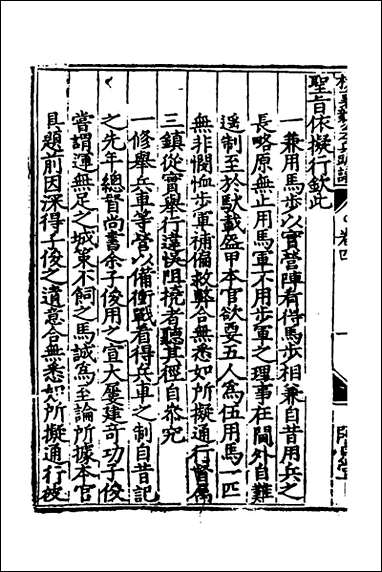 聖旨依擬行欽此
一兼用馬步以實營陣看得馬步相兼自昔用兵之
長略原無止用馬軍不用步軍之理事在閫外自難
遙制至於馱載盔甲本官欲要五人爲伍用馬一匹
無非憫恤步軍補偏救弊合無悉如所擬通行督屬
三鎮從實舉行違悞阻撓者聽其徑自參究
一修舉兵車等營以備衝戰看得兵車之制自昔記
之先年總督尚書余子俊用之宣大屢建奇功子俊
嘗謂運無足之城策不飼之馬誠爲至論所據本官
具題前因深得子俊之遺意合無悉如所擬通行被
卷四